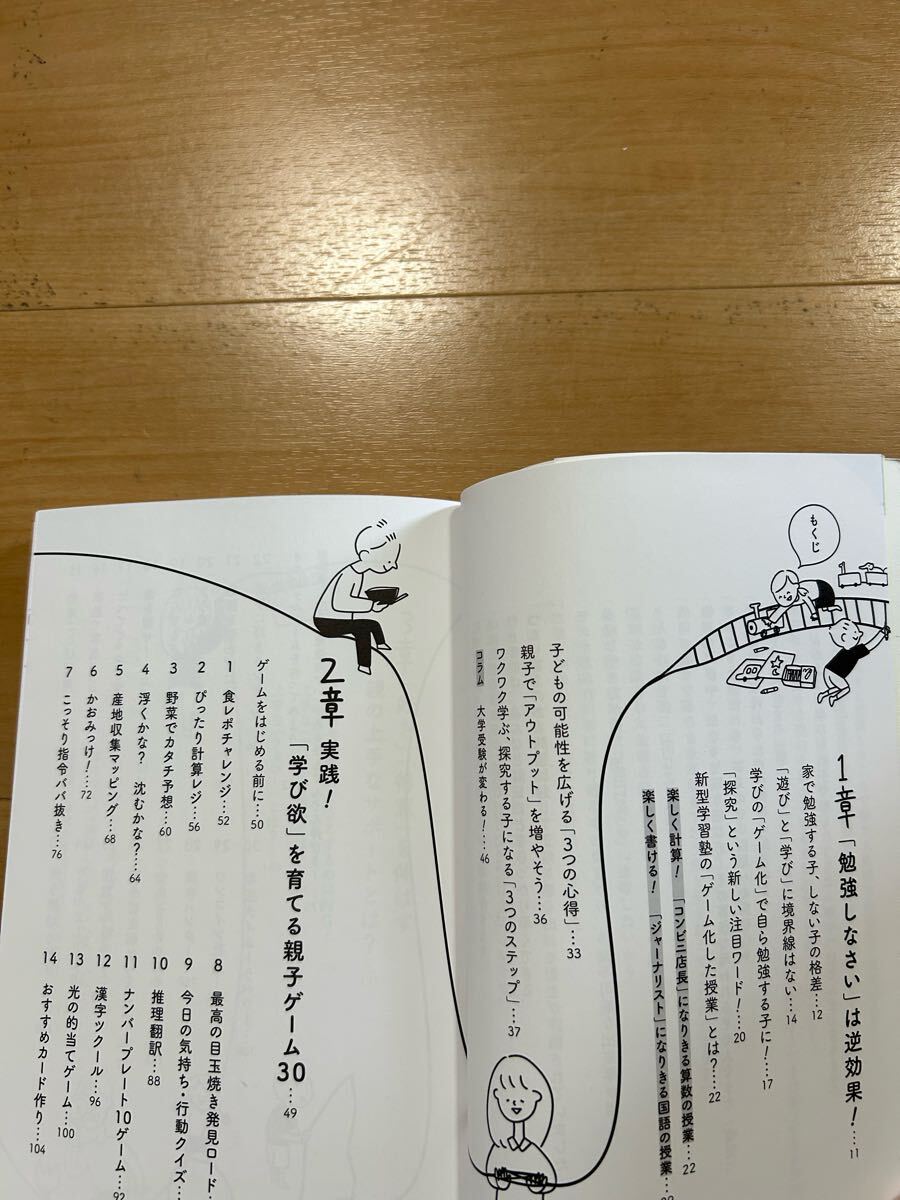 もくじ
1章「勉強しなさい」は逆効果！…11
家で勉強する子、しない子の格差…12
「遊び」と「学び」に境界線はない…14
学びの「ゲーム化」で自ら勉強する子に！…17
「探究」という新しい注目ワード！…20
新型学習塾の「ゲーム化した授業」とは？……22
楽しく計算！「コンビニ店長」になりきる算数の授業…22
楽しく書ける！「ジャーナリスト」になりきる国語の授業
子どもの可能性を広げる「3つの心得」…33
親子で「アウトプット」を増やそう…36
ワクワク学ぶ、探究する子になる「3つのステップ」…37
コラム 大学受験が変わる！…46
2章 実践！「学び欲」を育てる親子ゲーム30…49
ゲームをはじめる前に…50
1 食レポチャレンジ…52
2 ぴったり計算レジ…56
3 野菜でカタチ予想…60
4 浮くかな？ 沈むかな？…64
5 産地収集マッピング…68
6 かおみっけ！…72
7 こっそり指令ババ抜き…76
8 最高の目玉焼き発見ロード…
9 今日の気持ち・行動クイズ…
10 推理翻訳…88
11 ナンバープレート10ゲーム…92
12 漢字ツクール…96
13 光の的当てゲーム…100
14 おすすめカード作り…104